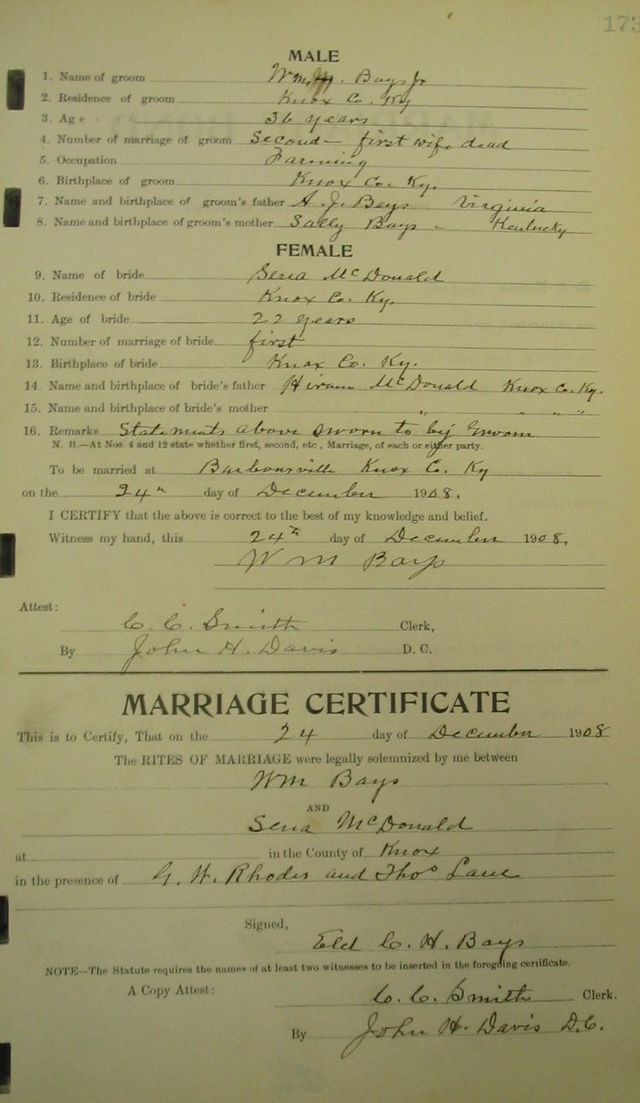 173
MALE
1. Name of groom Wm. Bays Jr
2. Residence of groom Knox Co. Ky
3. Age 36 years
4. Number of marriage of groom Second - first wife dead
5. Occupation Farming
6. Birthplace of groom Knox Co. Ky.
7. Name and birthplace of groom's father A. J. Bays Virginia
8. Name and birthplace of groom's mother Sally Bays - Kentucky
FEMALE
9. Name of bride Sena McDonald
10. Residence of bride Knox Co. Ky.
11. Age of bride 22 years
12. Number of marriage of bride first
13. Birthplace of bride Knox Co. Ky.
14. Name and birthplace of bride's father Hiram McDonald Knox Co. Ky.
15. Name and birthplace of bride's mother " " " "
16. Remarks Statements above sworn to by Groom
N. B.—At Nos 4 and 12 state whether first, second, etc., Marriage, of each or either party.
To be married at Barbourville Knox Co. Ky
on the 24th day of December 1908.
I CERTIFY that the above is correct to the best of my knowledge and belief.
Witness my hand, this 24th day of December 1908.
W M Bays
Attest:
C. C. Smith Clerk,
By John H. Davis D. C.
MARRIAGE CERTIFICATE
This is to Certify, That on the 24 day of December 1908
The RITES OF MARRIAGE were legally solemnized by me between
Wm Bays
AND
Sena McDonald
at in the County of Knox
in the presence of G. W. Rhodes and Thos Lane
Signed,
Eld C. H. Bays
NOTE—The Statute requires the names of at least two witnesses to be inserted in the foregoing certificate.
A Copy Attest: C. C. Smith Clerk.
By John H. Davis D.C.